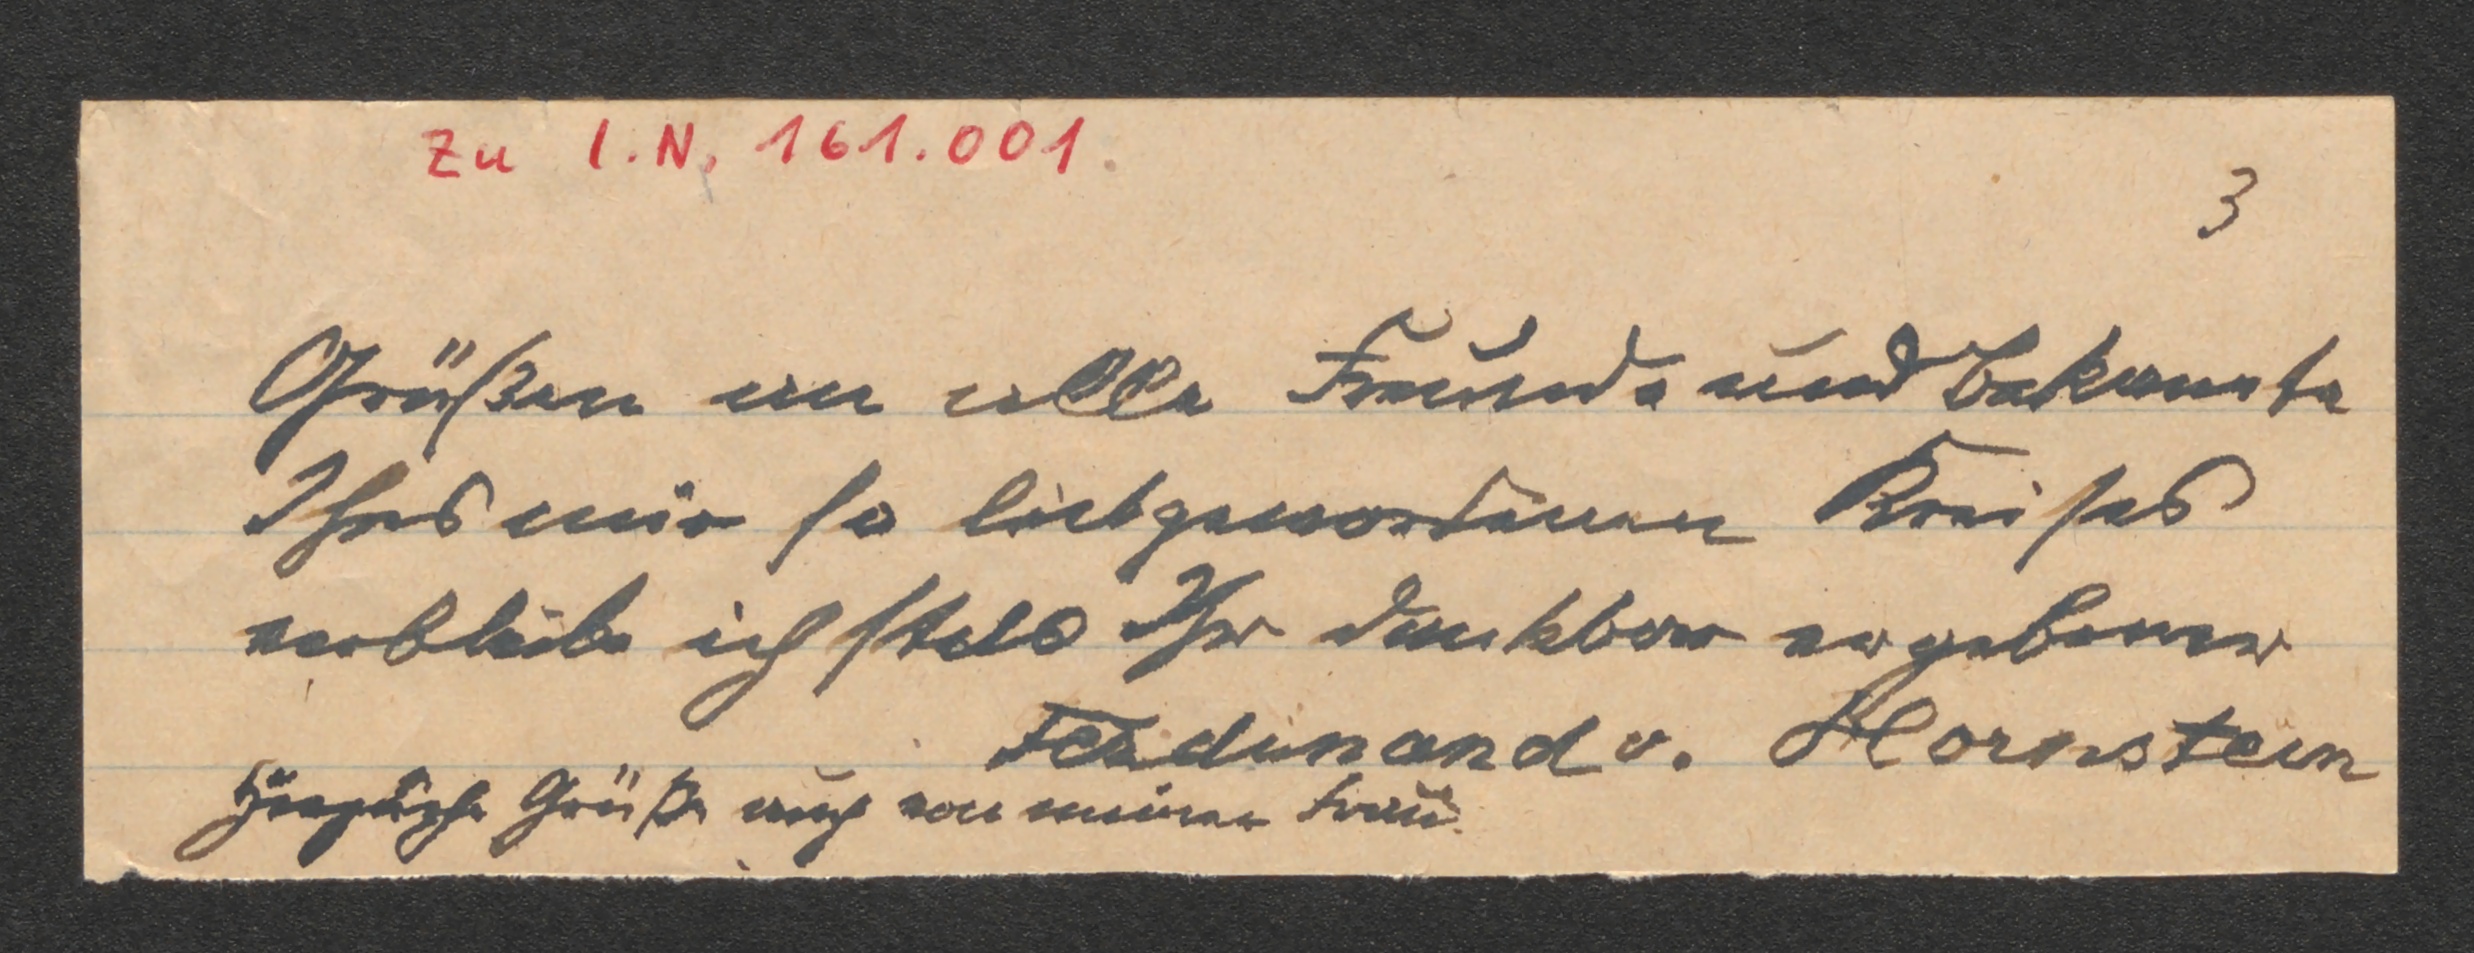 Zu I.N. 161.001.
3
Grüßen an alle Freunde und bekannte
Ihres mir so liebgewordenen Kreises
verbleibe ich stets Ihr dankbar ergebener
Ferdinand v. Hornstein
Herzliche Grüße auch von meiner Frau.